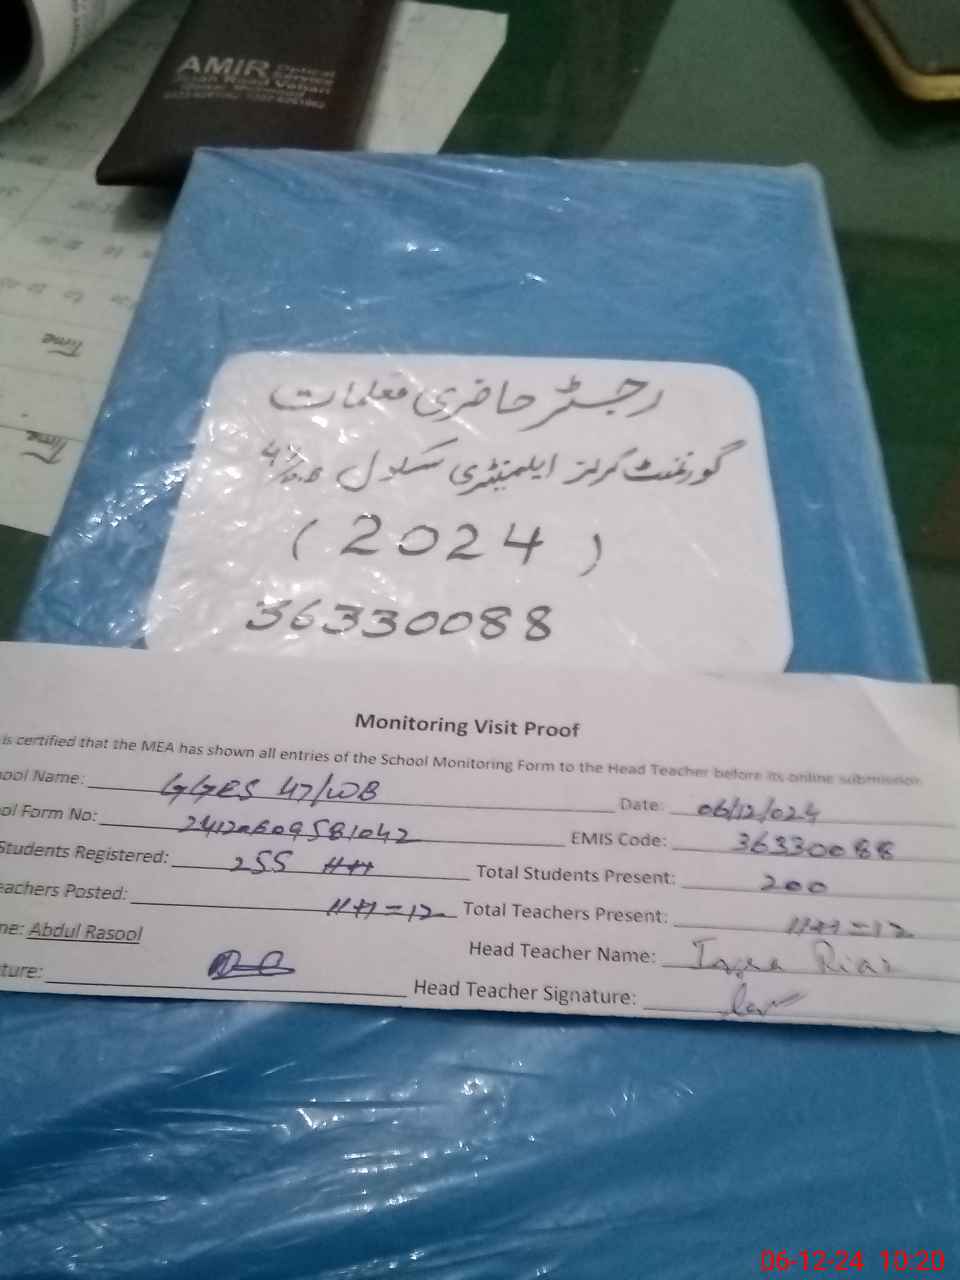 AMIR Optical Service
رجسٹر حاضری معلمات
گورنمنٹ گرلز ایلیمنٹری سکول 47/W.B
(2024)
36330088
Monitoring Visit Proof
is certified that the MEA has shown all entries of the School Monitoring Form to the Head Teacher before its online submission
ool Name: GGES 47/WB Date: 06/12/024
ol Form No: EMIS Code: 36330088
Students Registered: 255 Total Students Present: 200
eachers Posted: 11+1=12 Total Teachers Present: 11+1=12
me: Abdul Rasool Head Teacher Name: Iqra Riaz
ture: Head Teacher Signature:
Time
Time
06-12-24 10:20